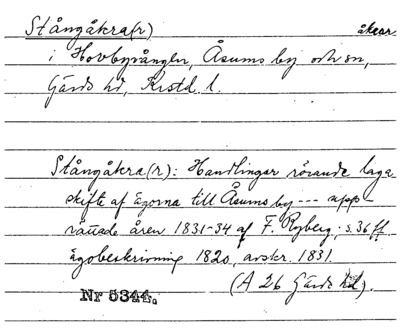 Stångåkra(r) åkrar
i Hovbyvången, Åsums by och sn,
Gärds hd, Krstd. l.
Stångåkra(r): Handlingar rörande laga
skifte af egorna till Åsums by --- upp-
rättade åren 1831-34 af F. Ryberg, s. 36 ff.
Egobeskrivning 1820, avskr. 1831.
(A 26 Gärds hd).
Nr 5344.